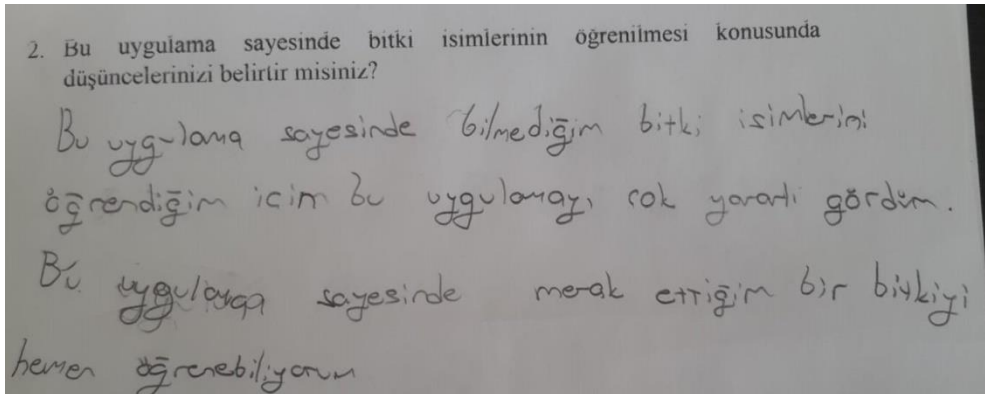 2. Bu uygulama sayesinde bitki isimlerinin öğrenilmesi konusunda
düşüncelerinizi belirtir misiniz?
Bu uygulama sayesinde bilmediğim bitki isimlerini
öğrendiğim icim bu uygulamayı cok yararlı gördüm.
Bu uygulama sayesinde merak ettiğim bir bitkiyi
hemen öğrenebiliyorum